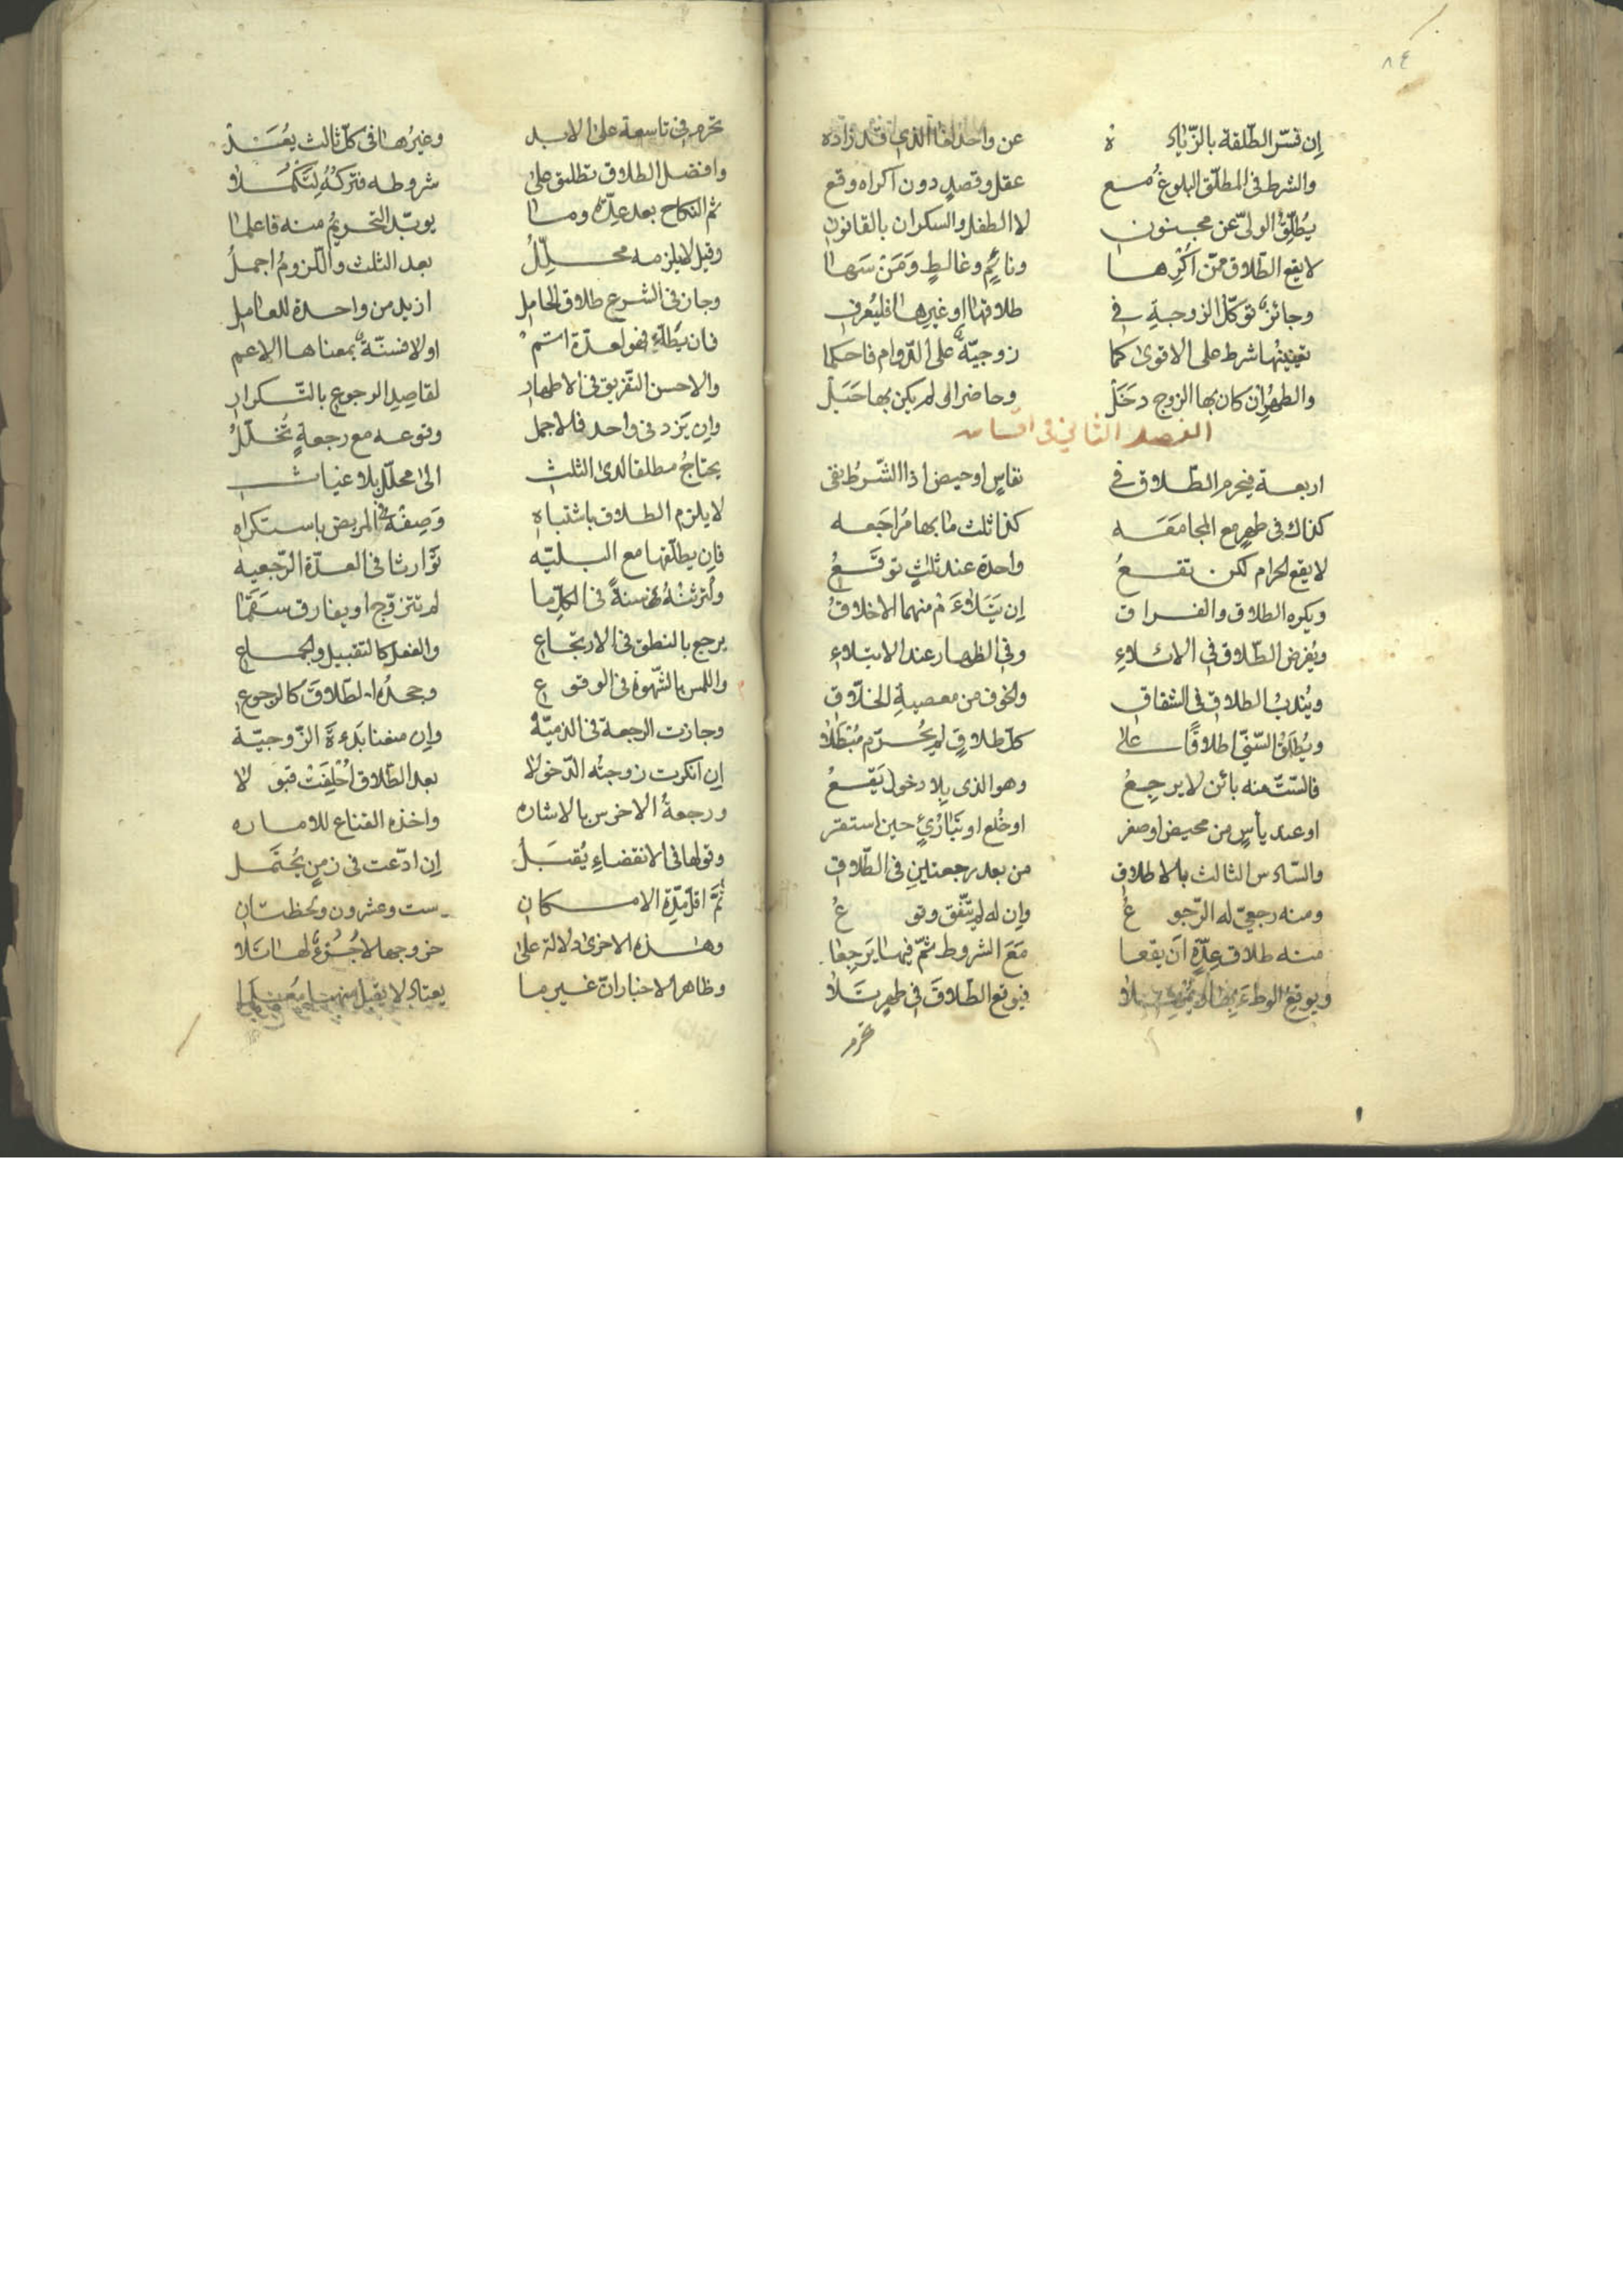 ٨٤
إن فسّر الطلقة بالزّيادة عن واحد لغا الذي قد زاده
والشرط في المطلّق البلوغ مع عقل وقصدٍ دون اكراه وقع
يُطلّق الولىّ عن مجنون لا الطفل والسكران بالقانون
لا يقع الطّلاق ممّن اُكْرِها ونائمٍ وغالطٍ ومَنْ سَها
وجائزٌ توكّل الزوجةِ في طلاقها او غيرها فليُعرف
تعيينها شرط على الاقوى كما زوجيّةٌ على الدّوام فاحكما
والطهرُ إن كان بها الزوج دَخَلْ وحاضرا لم يكن بها حَبَلْ
الفصل الثاني في اقسامه
اربعة فيحرم الطّلاق في نفاسٍ او حيض اذا الشّرطُ يفى
كذاك في طهرٍ مع المجامعَه كذا ثلث ما بها مُراجَعه
لا يقع الحرام لكن تقعُ واحدة عند ثلثٍ توقَعُ
ويكره الطلاق والفراق إن يَتَلاءَم منهما الاخلاقُ
ويُفرض الطّلاق في الائلاءِ وفي الظهار عند الابتلاءِ
ويُندبُ الطلاق في الشقاق والخوف من معصية الخلّاق
ويُطلَقُ السّنّي اطلاقًا على كلّ طلاقٍ لم يُحرّم مُبْطَلا
فالستّ منه بائن لا يرجِعُ وهو الذى بلا دخول يَقَعُ
او عند يأسٍ من محيض او صغر او خُلع او تَبارُئٍ حين استقر
والسّادس الثالث بالاطلاق من بعد رجعتين في الطّلاق
ومنه رجعيّ له الرّجوعُ وإن له لم يتّفق وقوعُ
منه طلاق عِدّةٍ أن يقعا مَعَ الشروط ثمّ فيها يَرجِعا
ويوقعُ الوطءَ فيوقع الطّلاقَ في طهرٍ تَلا
تحرم
تحرم في تاسعة على الابد وغيرُها في كلّ ثالث يُعَدّ
وافضل الطلاق تطليق على شروطه فتركُهُ لِتَكْمُلا
ثم النكاح بعد عِدّةٍ وما يوبّد التحريمُ منه فاعلما
وقيل لا يلزمه محلّلُ بعد الثلث واللّزومُ اجملُ
وجاز في الشرع طلاق الحامل ازيد من واحدة للعامل
فان يطأ فهو لعدّة استم اولا فسنّةٌ بمعناها الاعم
والاحسن التّفريق في الاطهار لقاصِدِ الرجوع بالتّكرارِ
وإن يَزد في واحد فالاجمل وقوعه مع رجعةٍ تُخلّلُ
يحتاجُ مطلقا لدى الثلث الى محلّل بلا غياث
لا يلزم الطلاق باشتباهِ وَصِفْهُ في المريض باستكراهِ
فإن يطلّقها مع البليّه تَوارثا في العدّة الرّجعيه
وأُورثتْهُ سنةً في الكلّ ما لم تتزوّج او يفارق سَقَمَا
يرجع بالنطق في الارتجاع والفعل كالتقبيل والجماع
واللمس بالشّهوة في الوقوع وجحدُه الطّلاقَ كالرجوع
وجازت الرجعة في الذميّةْ وإن منعنا بَدءةَ الزّوجيّة
إن انكرت زوجتُه الدّخولا بعد الطّلاق اُحْلِفَتْ قبولا
ورجعةُ الاخرس بالاشاره واخذه القناع للاماره
وقولها في الانقضاءِ يُقبَلُ إن ادّعت في زمنٍ يُحتَمل
ثمّ اقلّ مدّة الامكان ست وعشرون ولحظتان
وهذه الاخرى دلالة على خروجها لا جُزءٌ لها تلا
وظاهر الاخبار انّ غير ما يعتاد لا يقبل